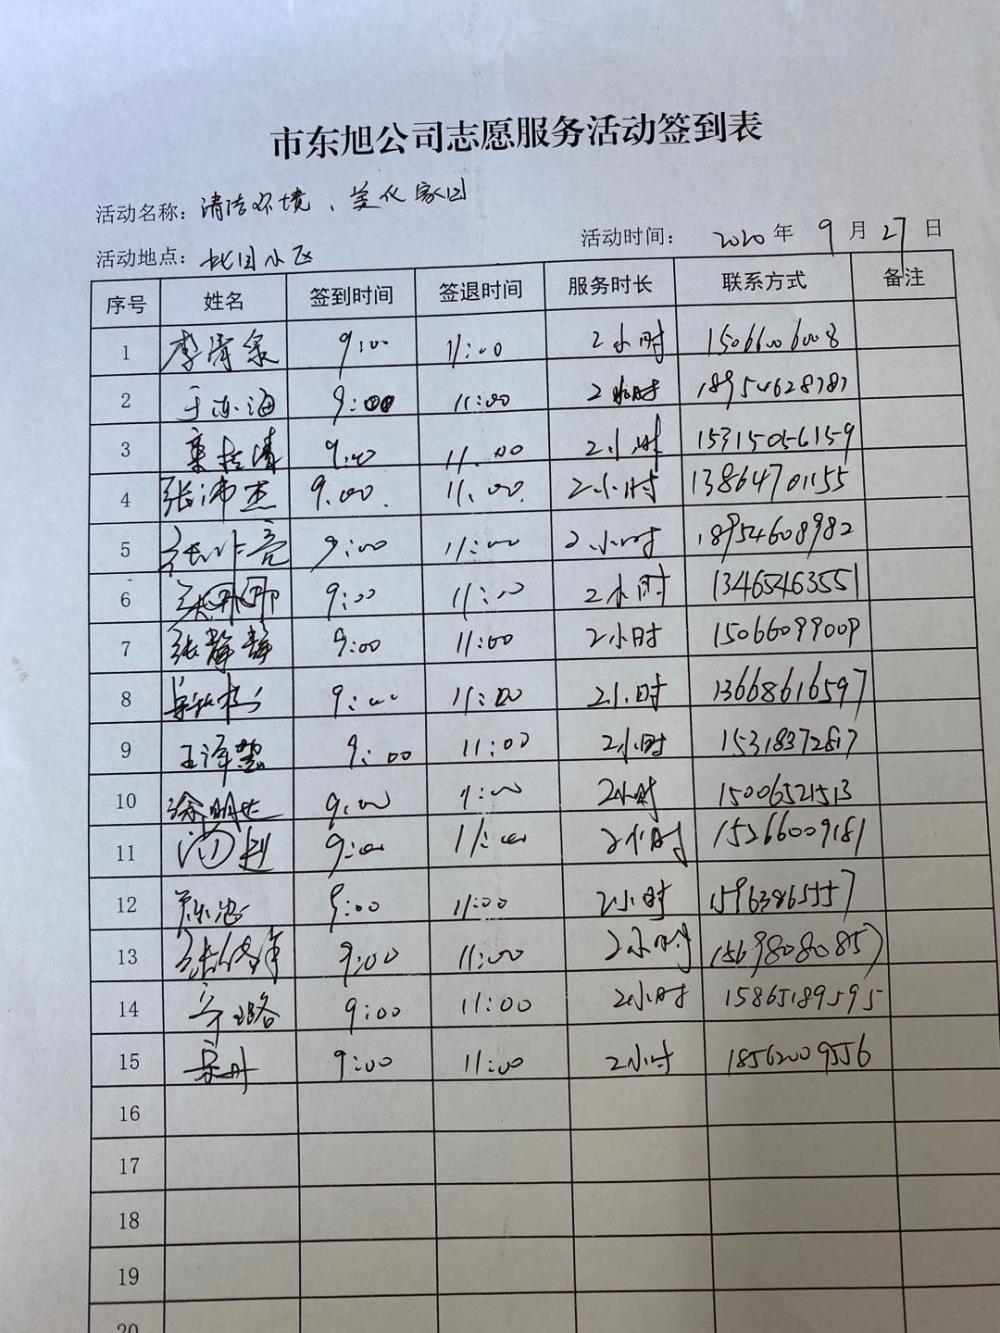 市东旭公司志愿服务活动签到表
活动名称：清洁环境、美化家园
活动时间： 2020 年 9 月 27 日
活动地点： 小区
序号 姓名 签到时间 签退时间 服务时长 联系方式 备注
1 李清泉 9:00 11:00 2小时 15066006008
2 于海 9:00 11:00 2小时 18954628787
3 9:00 11:00 2小时 15315056159
4 张沛杰 9:00 11:00 2小时 13864701155
5 9:00 11:00 2小时 18954608982
6 9:00 11:00 2小时 13465463551
7 张静静 9:00 11:00 2小时 15066099009
8 9:00 11:00 2小时 13668616597
9 王泽慧 9:00 11:00 2小时 15318372817
10 徐明 9:00 11:00 2小时 15006521513
11 9:00 11:00 2小时 15266009181
12 9:00 11:00 2小时 15963865557
13 9:00 11:00 2小时 15698080857
14 路 9:00 11:00 2小时 15865189595
15 9:00 11:00 2小时 18562009556
16
17
18
19
20